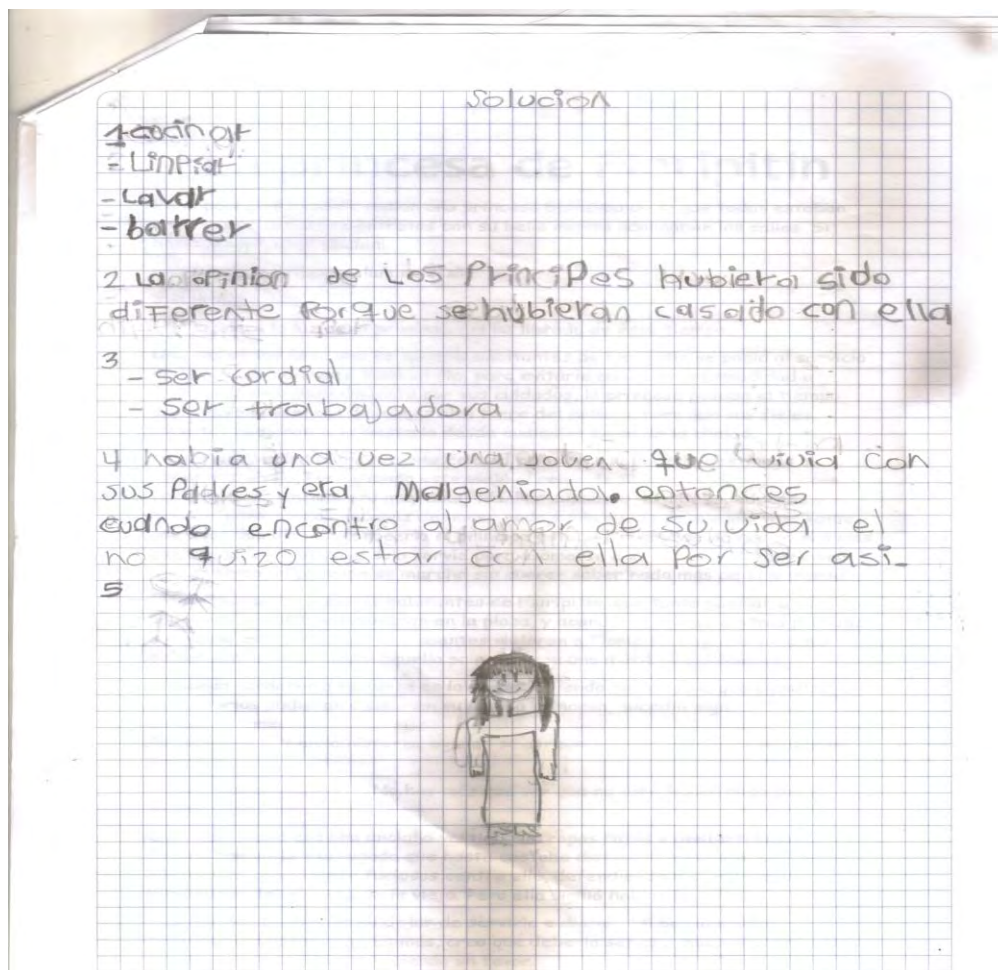 Solucion
1-cocinar
-Linpiar
-Lavar
-barrer
2 La opinion de Los Principes hubiera sido
diferente porque se hubieran casado con ella
3
- ser cordial
- ser trabajadora
4 había una vez una joven que vivia con
sus Padres y era Malgeniada. entonces
cuando encontro al amor de su vida el
no quizo estar con ella por ser asi-
5